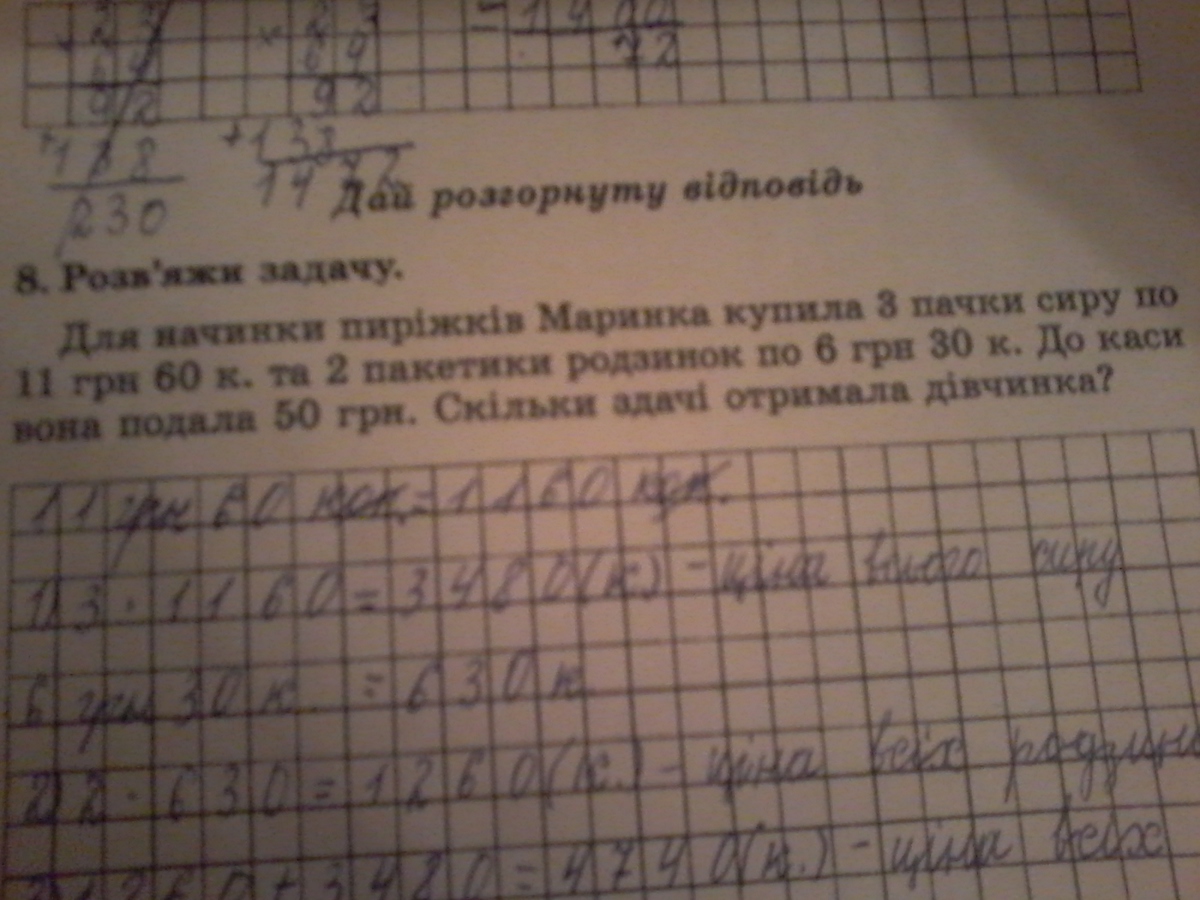 × 23 × 23 = 1400
64 64 72
92 92
+ 138 + 138
230 1472
Дай розгорнуту відповідь
8. Розв'яжи задачу.
Для начинки пиріжків Маринка купила 3 пачки сиру по
11 грн 60 к. та 2 пакетики родзинок по 6 грн 30 к. До каси
вона подала 50 грн. Скільки здачі отримала дівчинка?
11 грн 60 коп.=1160 коп.
1) 3·1160=3480(к.) - ціна всього сиру
6 грн 30 к = 630 к
2) 2·630=1260(к.) - ціна всіх родзин
1260+3480=4740(к.) - ціна всіх